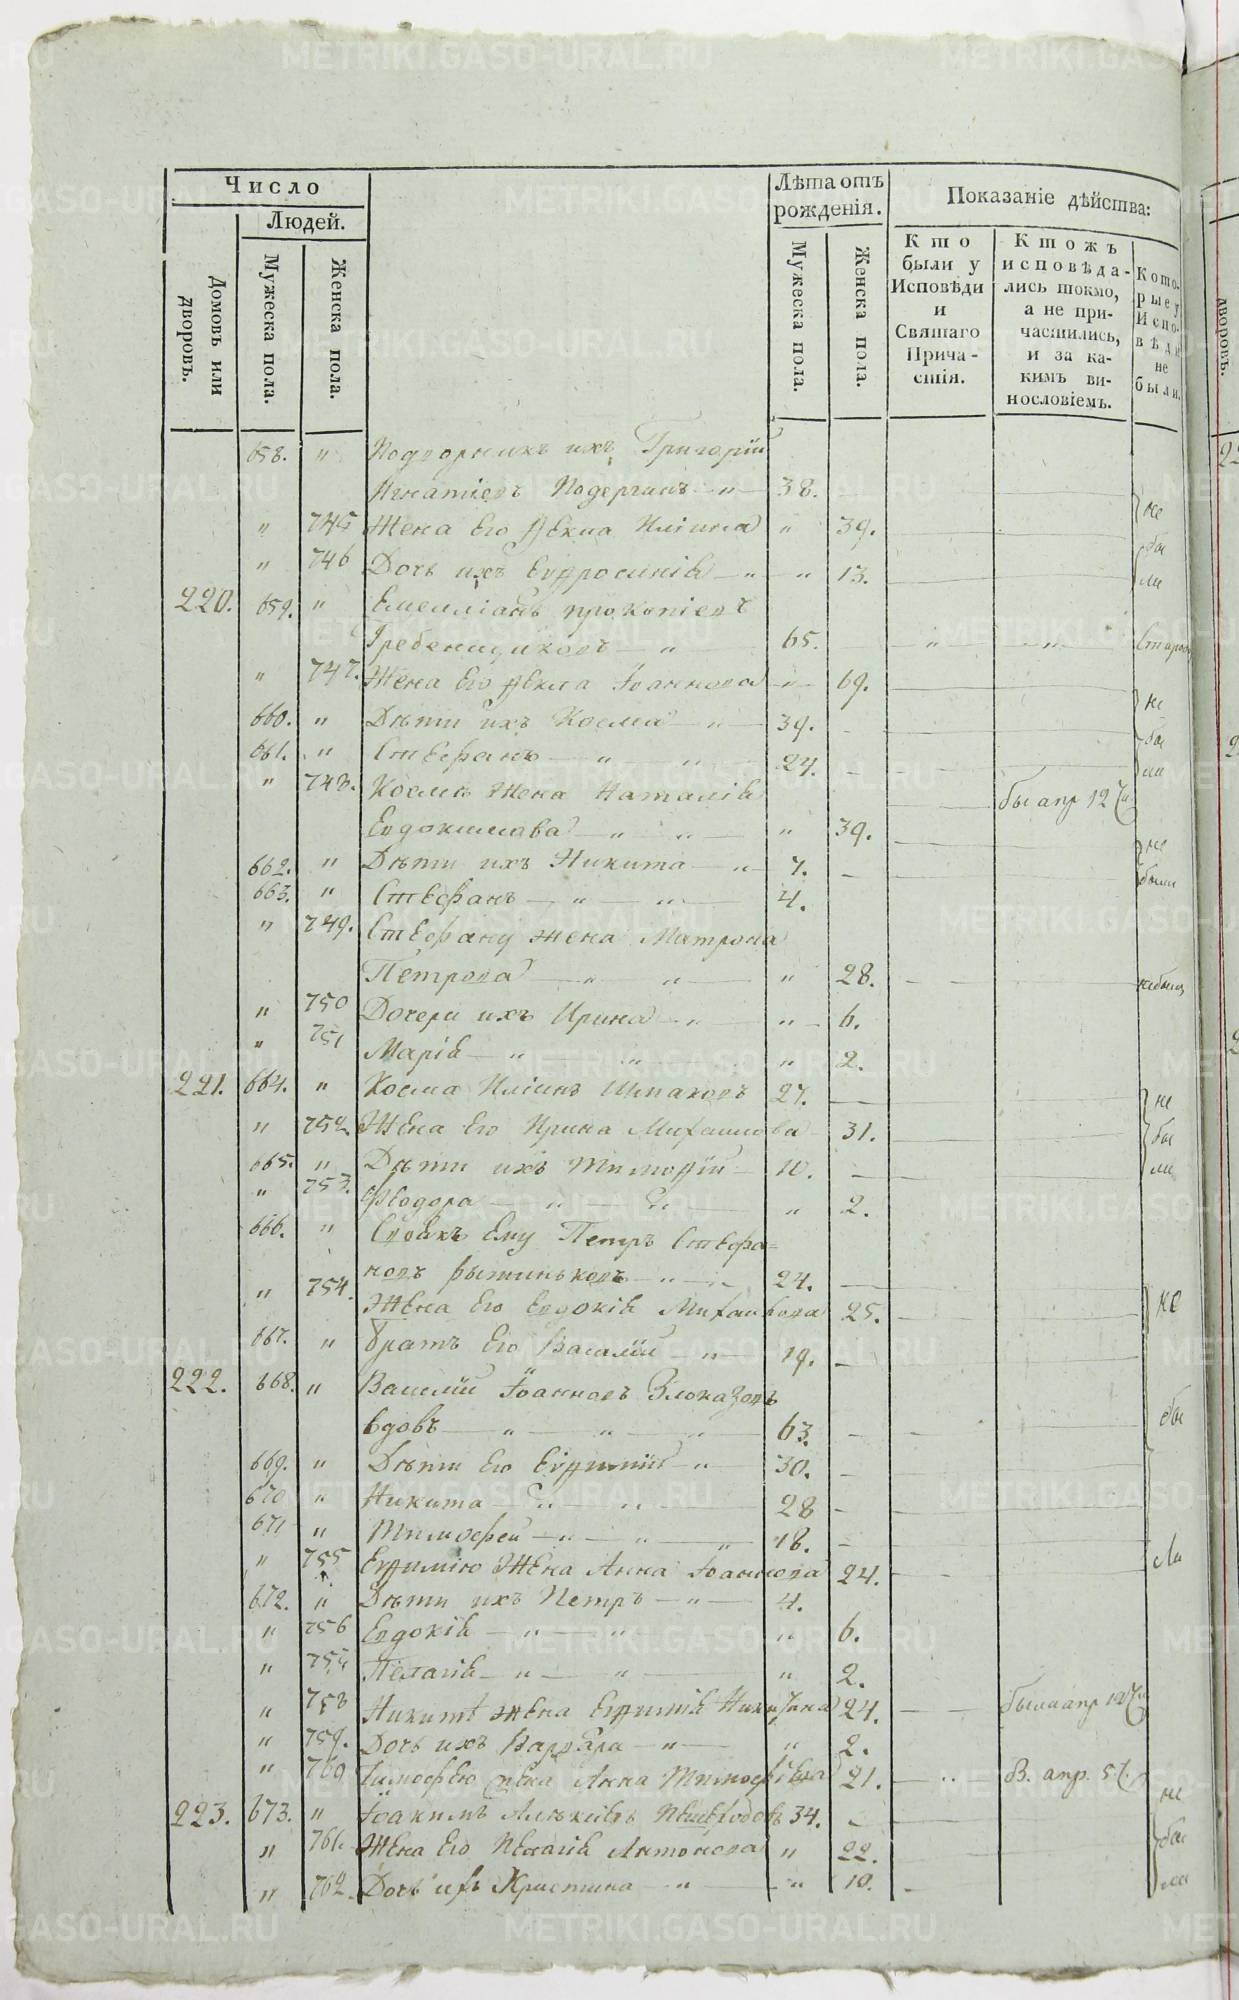 Число
Людей.
Домовъ или дворовъ.
Мужеска пола.
Женска пола.
Лѣта отъ рожденія.
Мужеска пола.
Женска пола.
Показаніе дѣйства:
Кто были у Исповѣди и Святаго Причастія.
Ктожъ исповѣдались токмо, а не причастились, и за какимъ винословіемъ.
Которые у Исповѣди не были.
658. " Подворникъ ихъ Григорій
Игнатіевъ Подергинъ — " — 38.
" 745 Жена Его Ѳекла Иліина " 39. не
" 746 Дочь ихъ Евфросинія — " — " 13. бы ли
220. 659. " Емелліанъ прокопіевъ
Гребенщиковъ — " — 65. " "
" 747. Жена Его Ѳекла Іоаннова — " 69.
660. " Дѣти ихъ Косма — " — 39. не
661. " Стефанъ — " " 24. бы ли
" 748. Космѣ Жена Наталія бы апр 12
Евдокимова — " " — " 39.
662. " Дѣти ихъ Никита — " — 7. не
663. " Стефанъ — " — " — 4. были
" 749. Стефану жена Матрона
Петрова — " " — " 28.
" 750 Дочери ихъ Ирина — " — " 6.
" 751 Марія — " — " " 2.
221. 664. " Косма Иліинъ Шпаковъ 27.
" 752 Жена Его Ирина Михаилова 31. не
665. " Дѣти ихъ Тимоѳій — 10. бы ли
" 753. Ѳеодора — " — " " 2.
666. " Своякъ Ему Петръ Стефа=
новъ — " — " 24.
" 754. Жена Его Евдокія Михаилова 25. не
667. " братъ Его Василій " — 19.
222. 668. " Василій Іоанновъ Злоказовъ
вдовъ — " — " — " 63. бы
669. " Дѣти Его Евѳимій — " 30.
670 " Никита — " — " 28
671 " Тимофей — " — " — " 18.
" 755 Евѳимію Жена Анна Іоаннова 24. ли
672. " Дѣти ихъ Петръ — " — 4.
" 756 Евдокія — " — " — " 6.
" 757 Пелагія — " — " — " 2.
" 758 Никитѣ жена Евѳимія Никитина 24. была апр 12
" 759. Дочь ихъ Варвара — " — " 2.
" 760 Тимофею жена Анна Тимофѣева 21. — " В. апр. 5
223. 673. " Іоакимъ Алѣкіевъ 34. не
" 761. Жена Его Пелагія Антонова " 22. бы
" 762. Дочь их Христина — " — " 10. ли